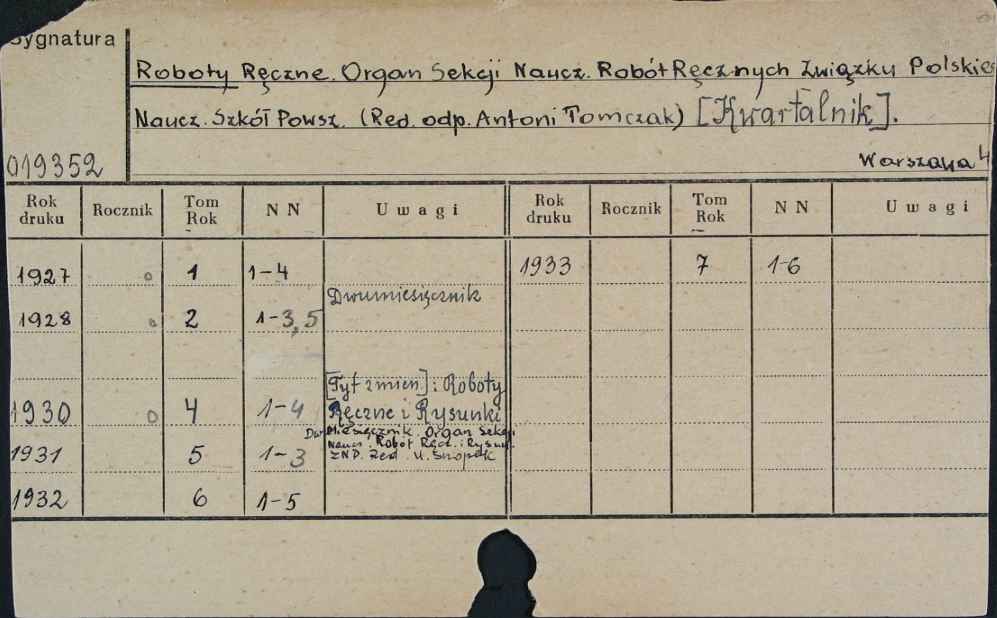 Sygnatura
Roboty Ręczne. Organ Sekcji Naucz. Robót Ręcznych Związku Polskie
Naucz. Szkół Powsz. (Red. odp. Antoni Tomczak) [Kwartalnik].
019352
Warszawa 4
Rok druku Rocznik Tom Rok N N Uwagi Rok druku Rocznik Tom Rok N N Uwagi
1927 o 1 1-4 1933 7 1-6
Dwumiesięcznik
1928 o 2 1-3,5
[Tyt zmien]: Roboty
1930 o 4 1-4 Ręczne i Rysunki
Dwumiesięcznik Organ Sekcji
Naucz. Robót Ręcz. i Rysun.
1931 5 1-3 ZNP. Red. W.
1932 6 1-5